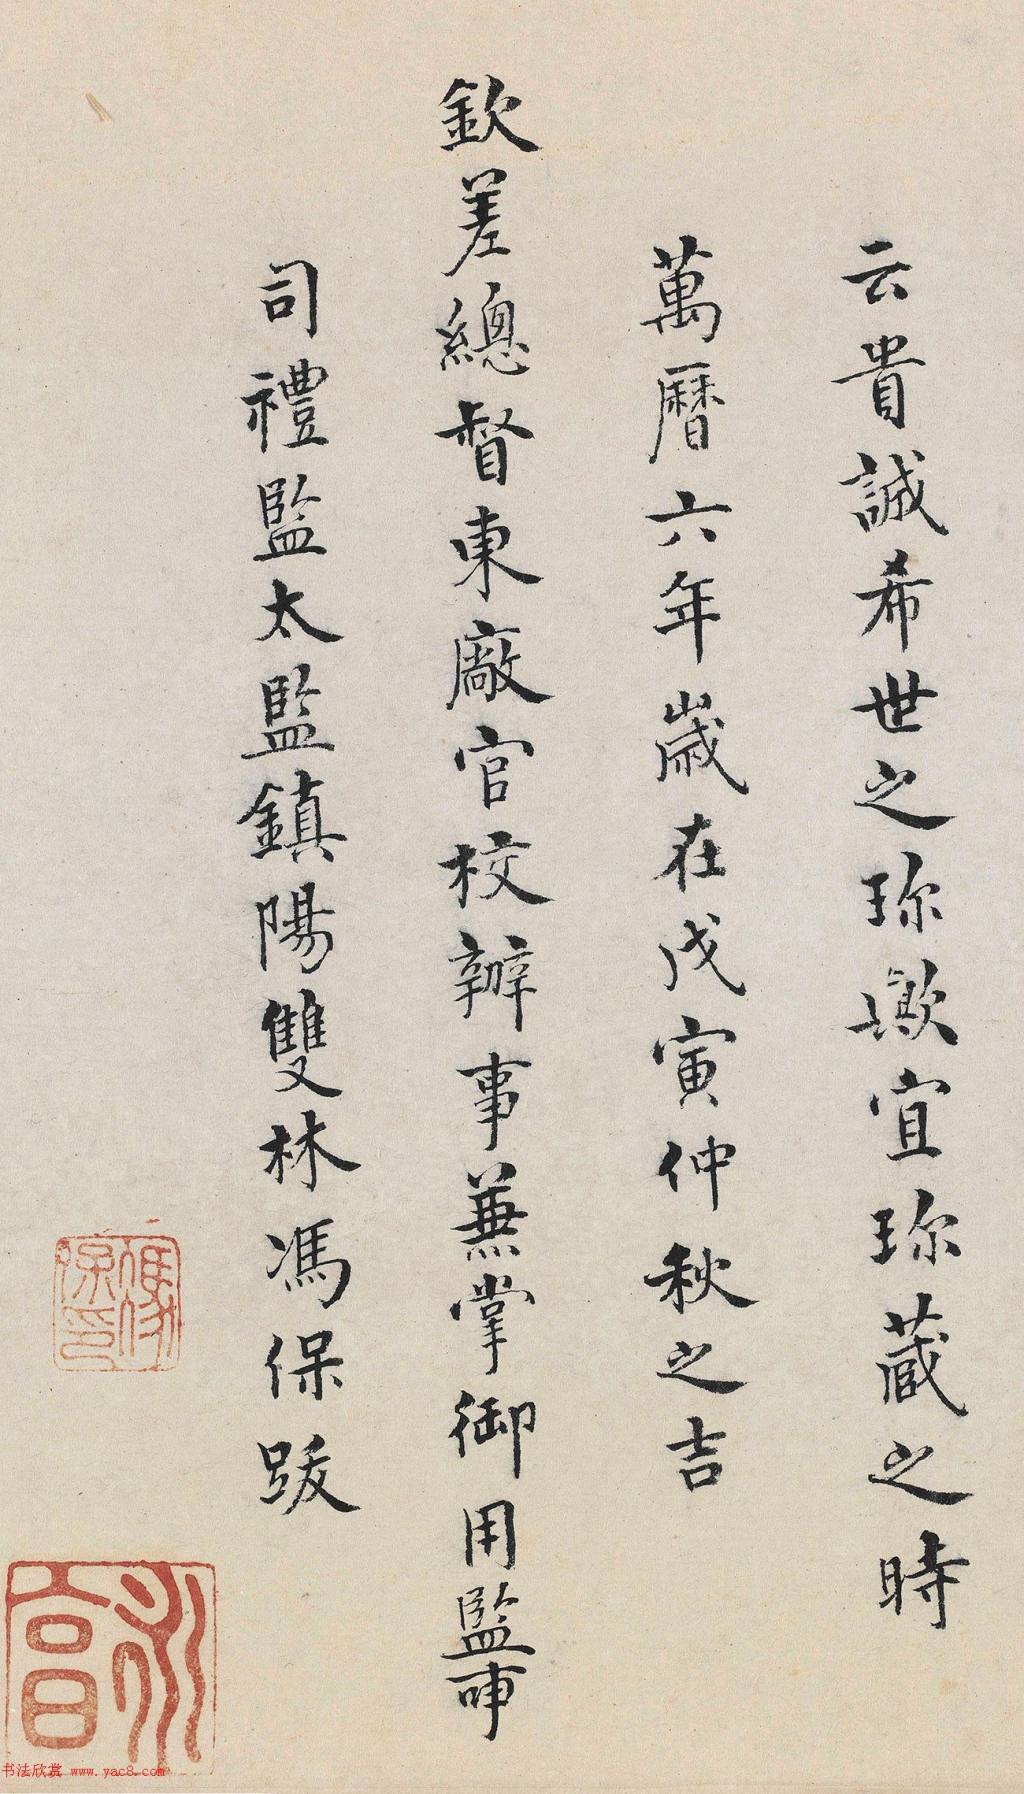 云貴誠希世之珎歟宜珎藏之時
萬曆六年歲在戊寅仲秋之吉
欽差總督東廠官校辦事兼掌御用監事
司禮監太監鎮陽雙林馮保跋
馮保印
書法欣赏 www.yac8.com